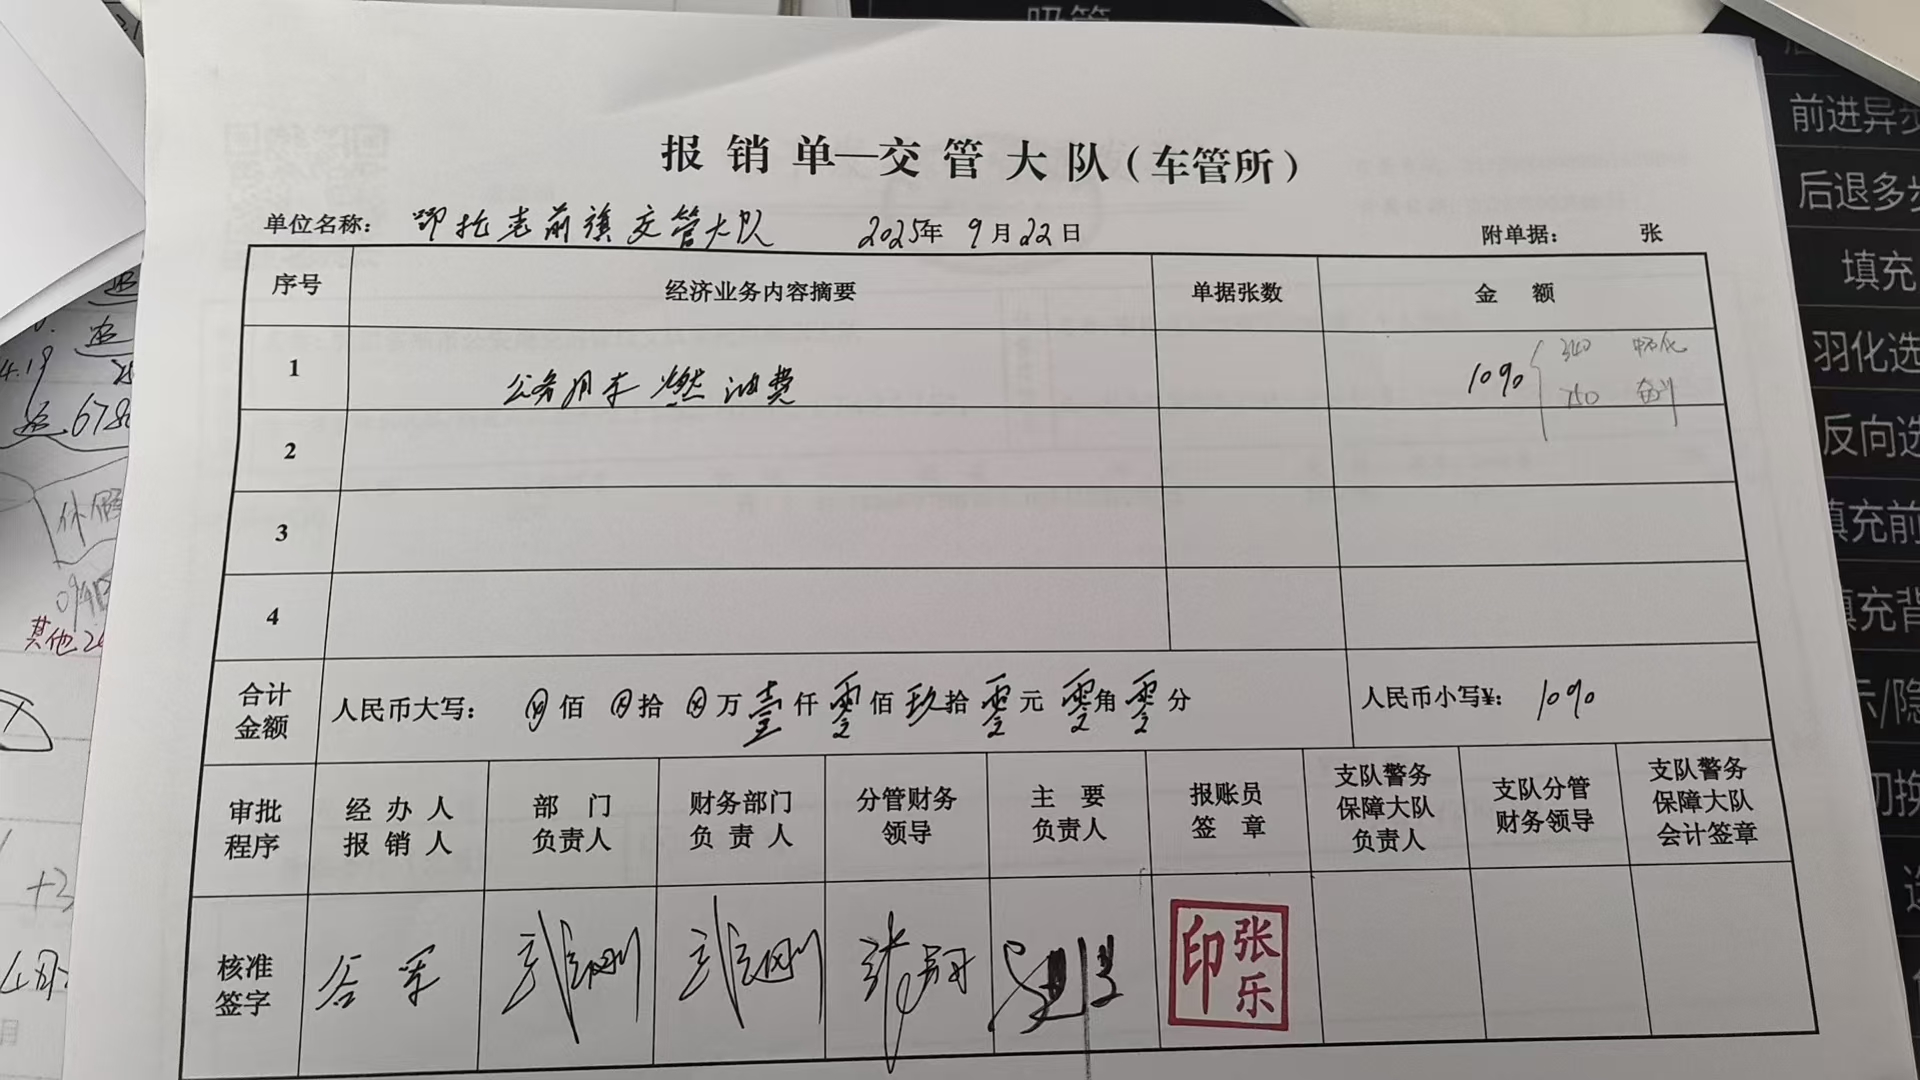 报销单—交管大队（车管所）
单位名称： 前旗交管大队 2025年9月22日 附单据： 张
序号 经济业务内容摘要 单据张数 金额
1 公务用车燃油费 1090 340 750
2
3
4
合计金额 人民币大写： 佰 拾 万壹仟零佰玖拾零元零角零分 人民币小写¥： 1090
审批程序 经办人报销人 部门负责人 财务部门负责人 分管财务领导 主要负责人 报账员签章 支队警务保障大队负责人 支队分管财务领导 支队警务保障大队会计签章
核准签字 张乐印
前进异步
后退多步
填充
羽化选
反向选
填充前
填充背
示/隐
切换
4.19
678
休假
其他
+3